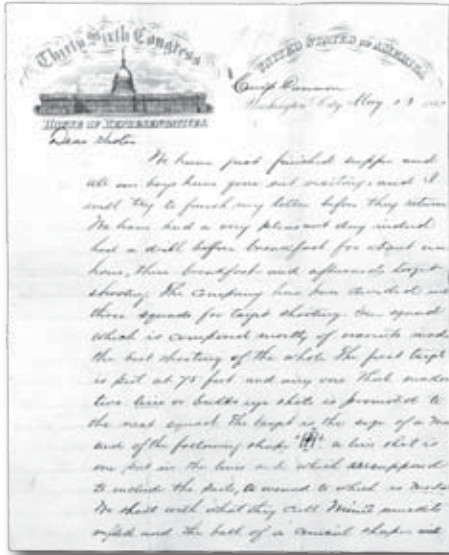 Thirty Sixth Congress
UNITED STATES OF AMERICA
HOUSE OF REPRESENTATIVES.
Camp Cameron
Washington City May
Dear Sister
We have just finished supper and
all our boys have gone out visiting, and I
will try to finish my letter before they return
We have had a very pleasant day indeed
had a drill before breakfast for about one
hour, then breakfast and afterwards target
shooting. The company has been divided into
three squads for target shooting. Our squad
which is composed mostly of made
the best shooting of the whole The first target
is put at 75 feet and any one that makes
two line or bulls eye shots is promoted to
the next squad. The target is the size of a man
and of the following shape a line shot is
one put in the lines and which are supposed
to include the , to wound to which is
We shoot with what they call Minie
rifles and the ball of a conical shape